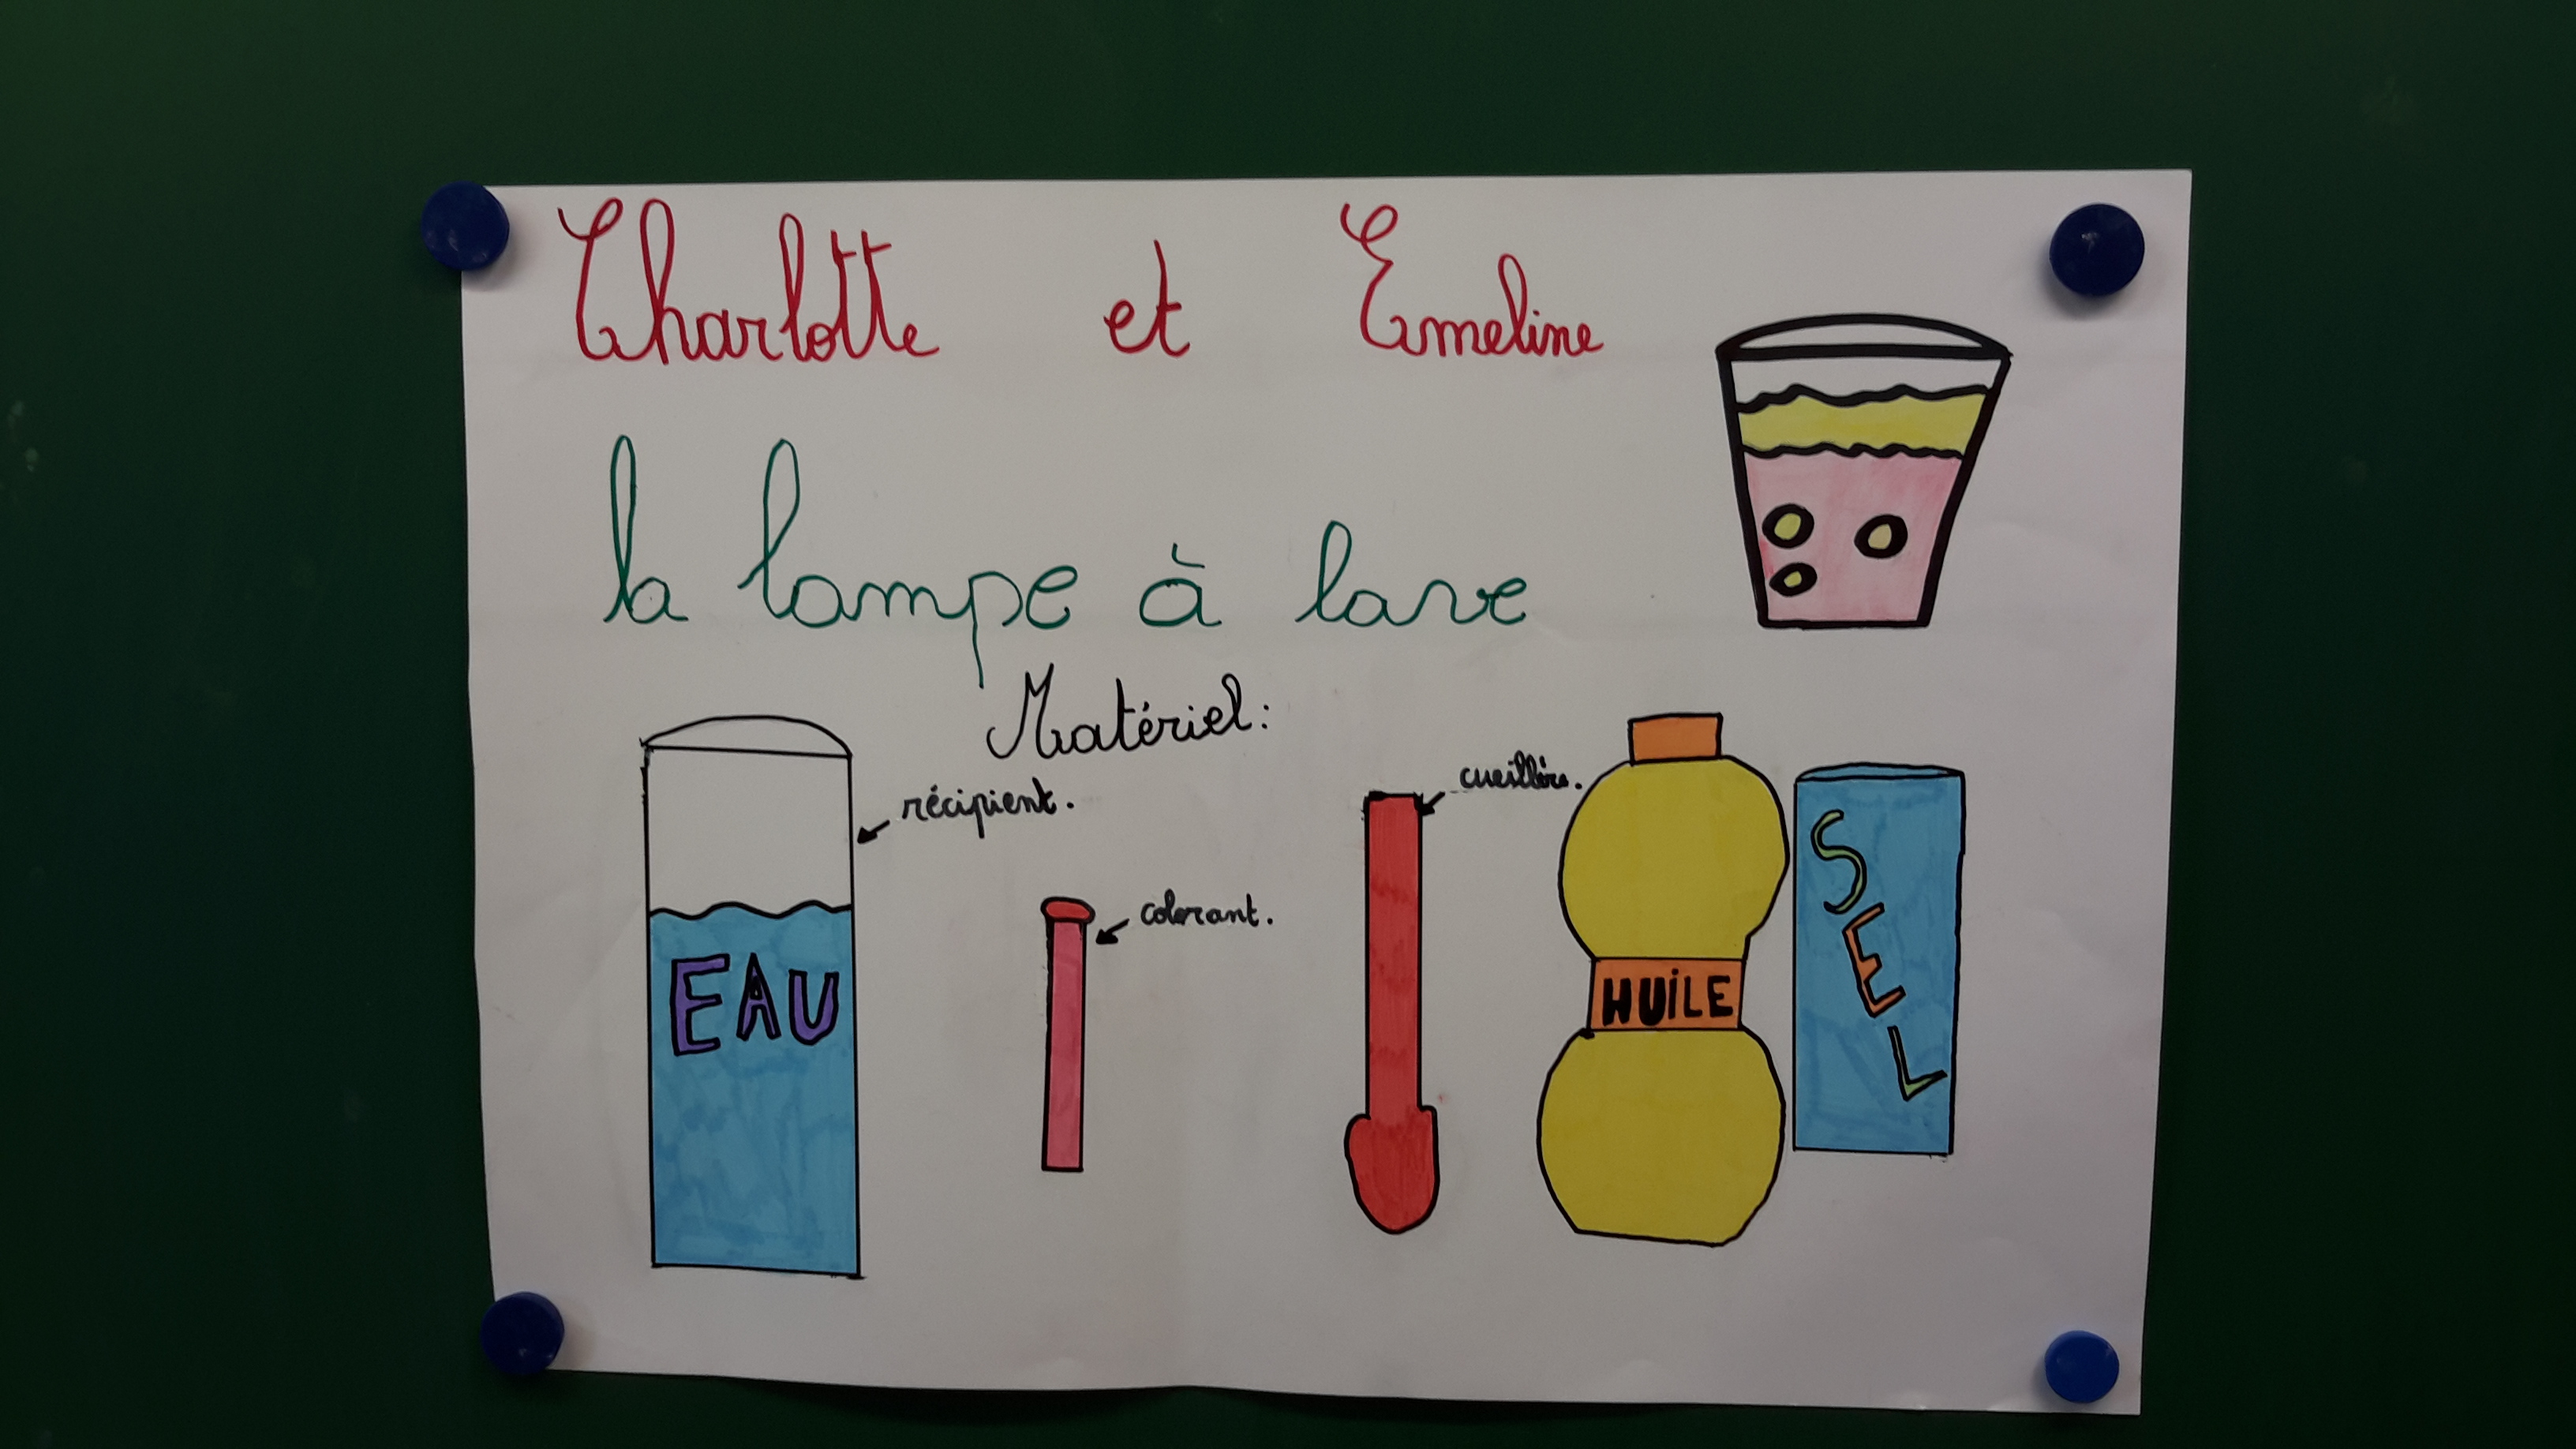 Charlotte et Emeline
la lampe à lave
Matériel:
récipient.
cueillère.
colorant.
EAU
HUiLE
SEL